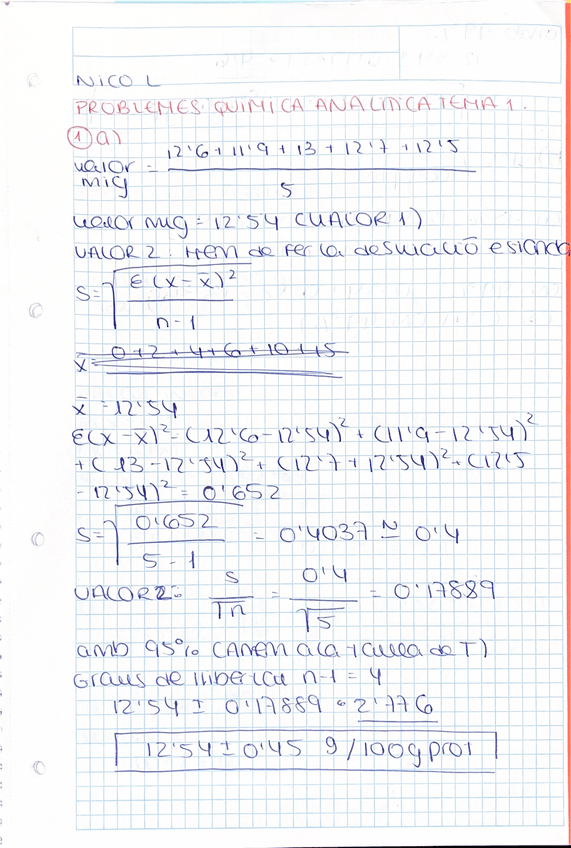 NICO L
PROBLEMES QUÍMICA ANALÍTICA TEMA 1.
① a)
valor mig = 12'6 + 11'9 + 13 + 12'7 + 12'5 / 5
valor mig = 12'54 (VALOR 1)
VALOR 2: Hem de fer la desviació estànda
S = √ Ɛ(x - x̄)² / n-1
x̄ = 0+2+4+6+10+15
x̄ = 12'54
Ɛ(x - x̄)² = (12'6 - 12'54)² + (11'9 - 12'54)²
+ (13 - 12'54)² + (12'7 + 12'54)² + (12'5
- 12'54)² = 0'652
S = √ 0'652 / 5-1 = 0'4037 ≃ 0'4
VALOR 2 = S / √n = 0'4 / √5 = 0'17889
amb 95% (ANEM a la taula de T)
Graus de llibertat n-1 = 4
12'54 ± 0'17889 · 2'776
12'54 ± 0'45 g/100g prot